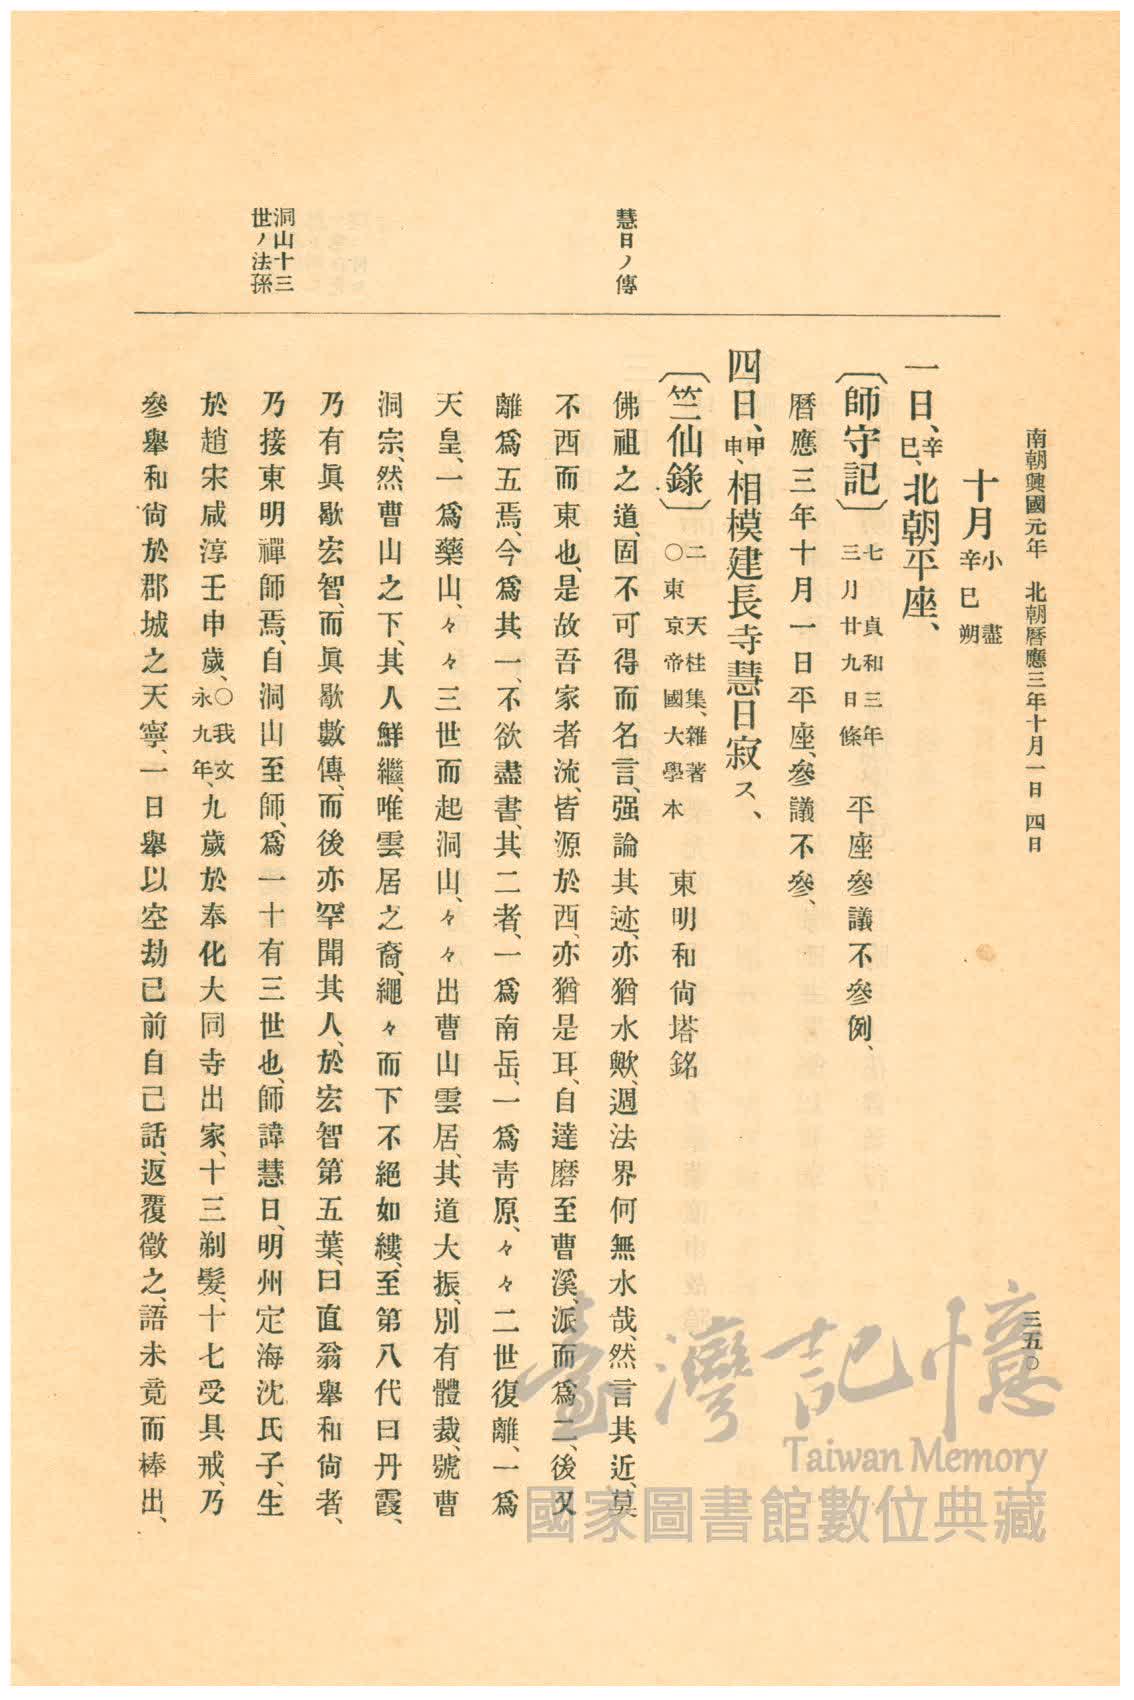 南朝興國元年　北朝曆應三年十月一日　四日
三五〇
十月小盡辛巳朔
一日、辛巳、北朝平座、
〔師守記〕七　貞和三年三月廿九日條　平座參議不參例、
曆應三年十月一日平座、參議不參、
四日、甲申、相模建長寺慧日寂ス、
〔竺仙錄〕二　天柱集、雜著〇東京帝國大學本　東明和尙塔銘
慧日ノ傳
佛祖之道、固不可得而名言、强論其迹、亦猶水歟、週法界何無水哉、然言其近、莫
不西而東也、是故吾家者流、皆源於西、亦猶是耳、自達磨至曹溪、派而爲二、後又
離爲五焉、今爲其一、不欲盡書、其二者、一爲南岳、一爲靑原、々々二世復離、一爲
天皇、一爲藥山、々々三世而起洞山、々々出曹山雲居、其道大振、別有體裁、號曹
洞宗、然曹山之下、其人鮮繼、唯雲居之裔、繩々而下不絕如縷、至第八代曰丹霞、
乃有眞歇宏智、而眞歇數傳、而後亦罕聞其人、於宏智第五葉、曰直翁擧和尙者、
洞山十三世ノ法孫
乃接東明禪師焉、自洞山至師、爲一十有三世也、師諱慧日、明州定海沈氏子、生
於趙宋咸淳壬申歲、〇我文永九年、九歲於奉化大同寺出家、十三剃髮、十七受具戒、乃
參擧和尙於郡城之天寧、一日擧以空劫已前自己話、返覆徵之、語未竟而棒出、
臺灣記憶
Taiwan Memory
國家圖書館數位典藏